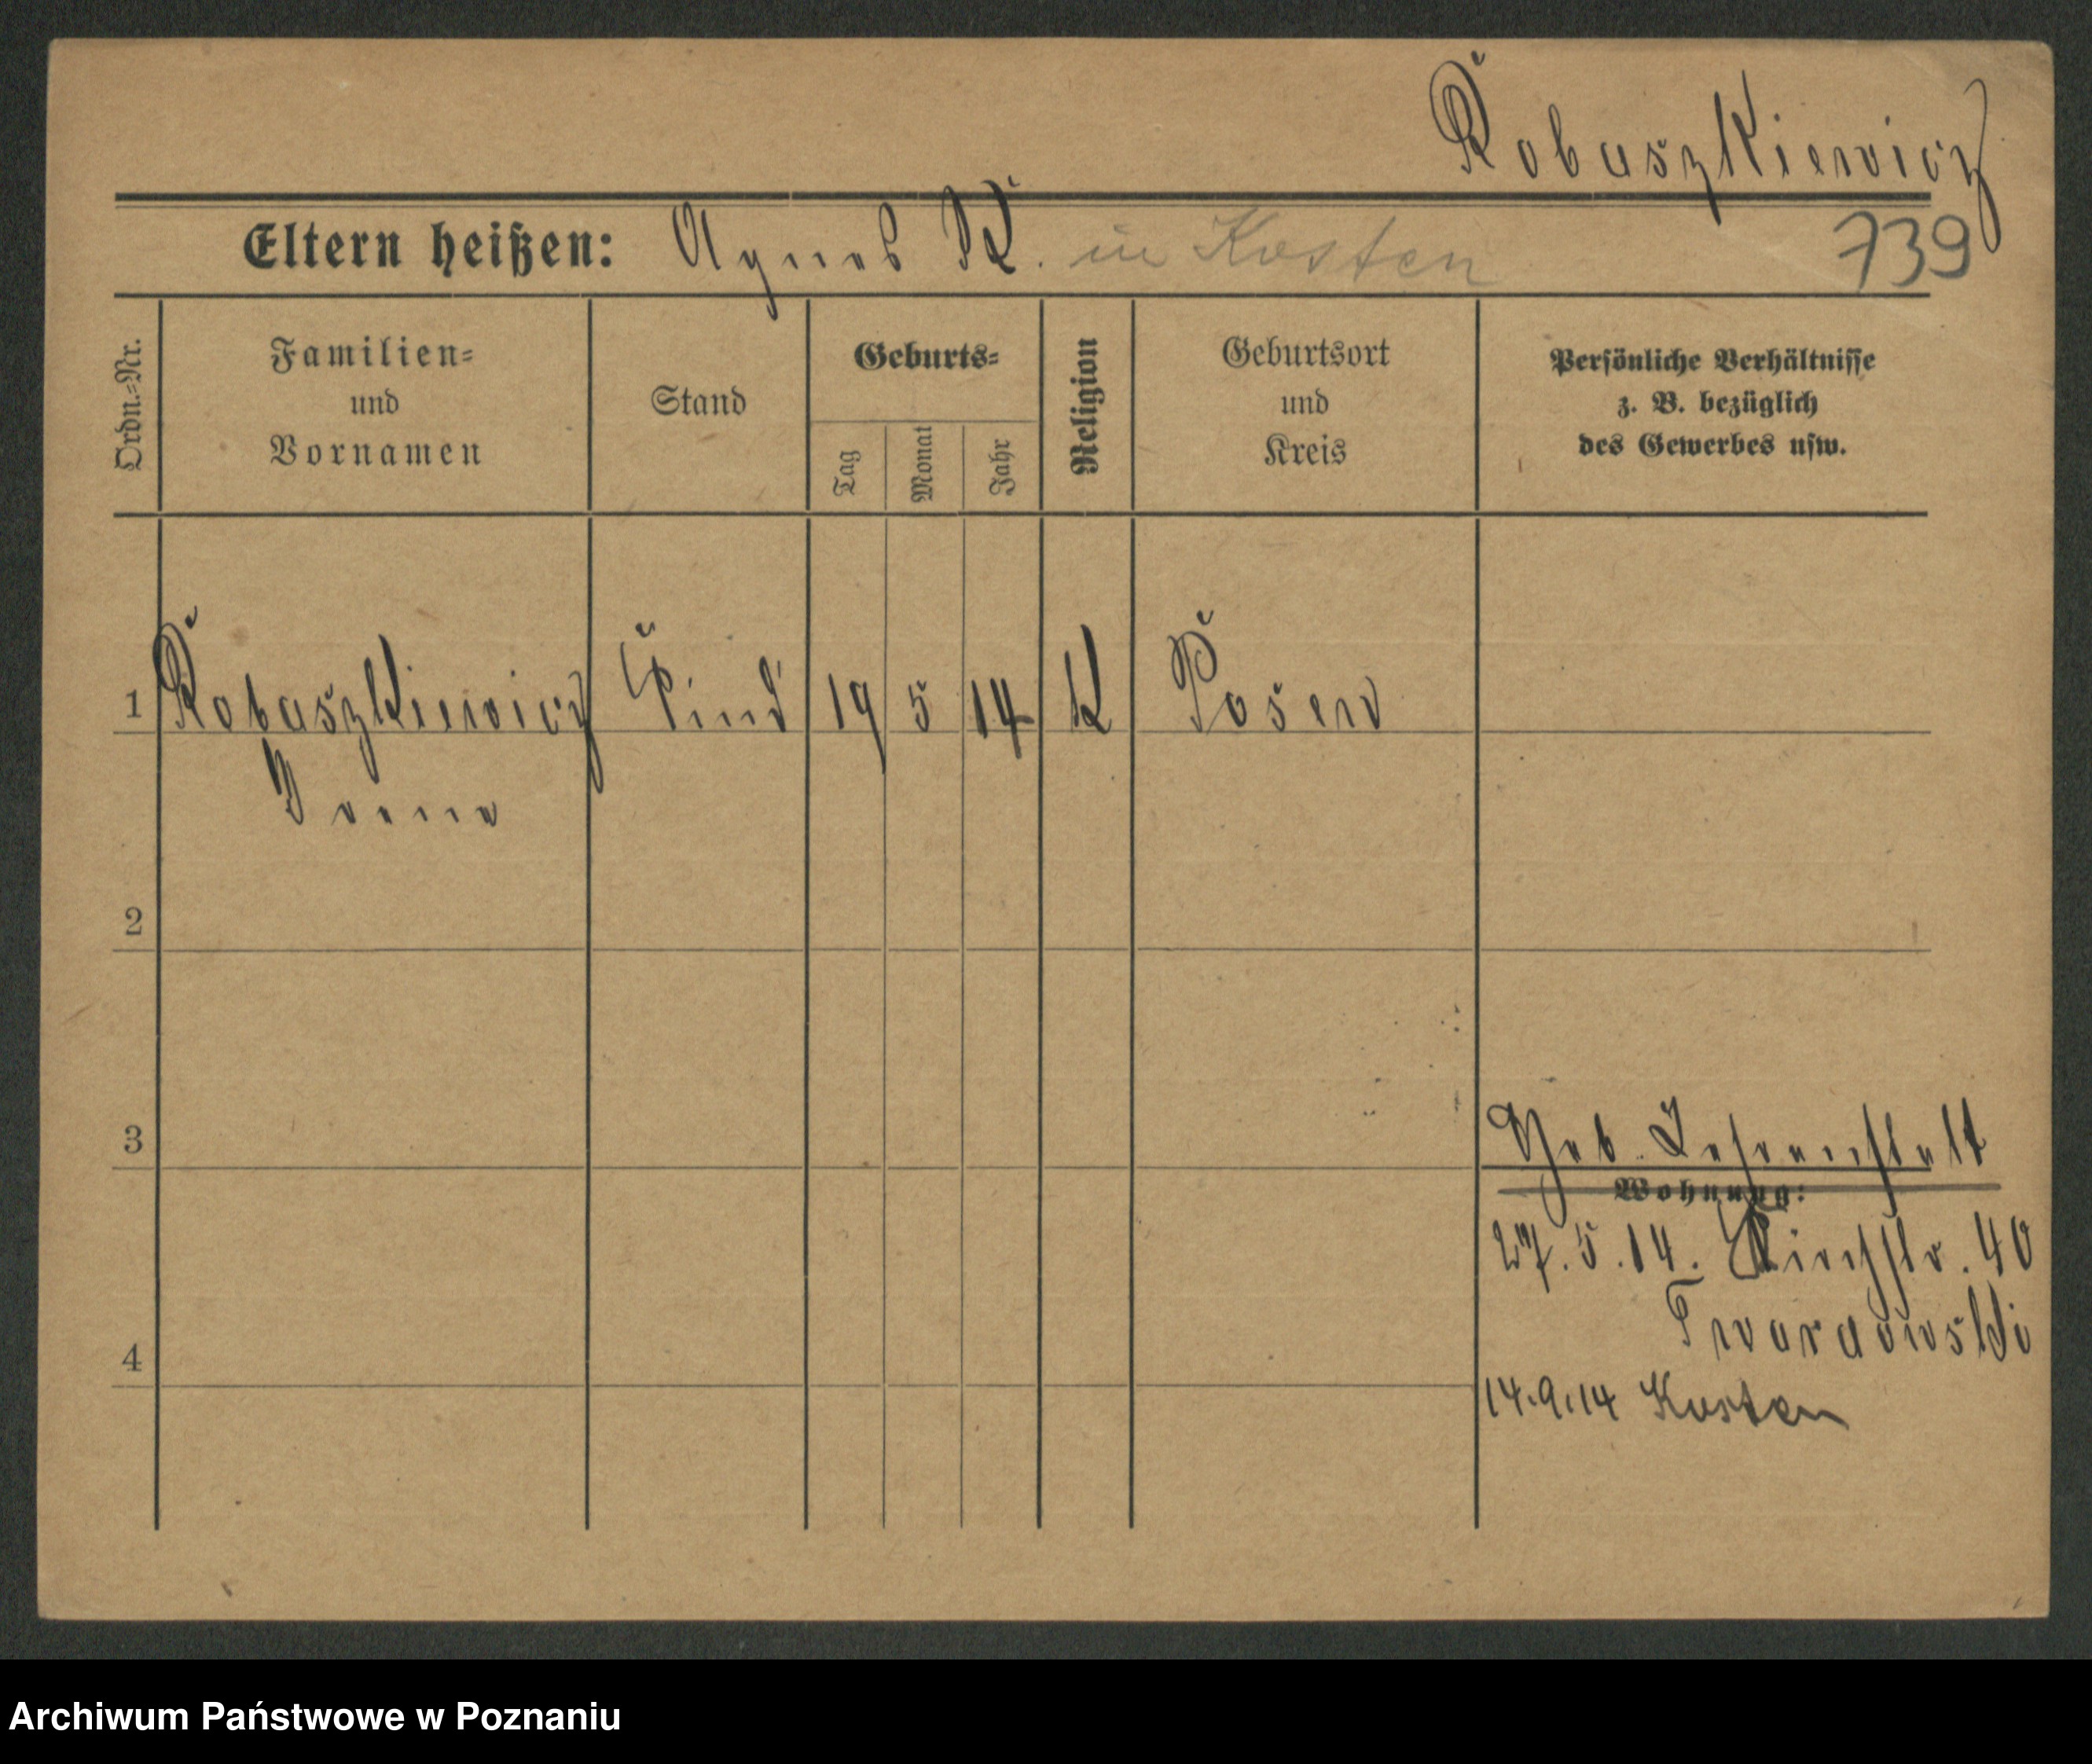 Robaszkiewicz
Eltern heißen: Agnes R. in Kosten 739
Ordn.=Nr.
Familien=
und
Vornamen
Stand
Geburts=
Tag
Monat
Jahr
Religion
Geburtsort
und
Kreis
Persönliche Verhältnisse
z. B. bezüglich
des Gewerbes usw.
1 Robaszkiewicz Kind 19 5 14 K Posen
2
3
Heb. Lehranstalt
Wohnung:
27. 5. 14. Kirchstr. 40
Twardowski
4
14.9.14 Kosten
Archiwum Państwowe w Poznaniu